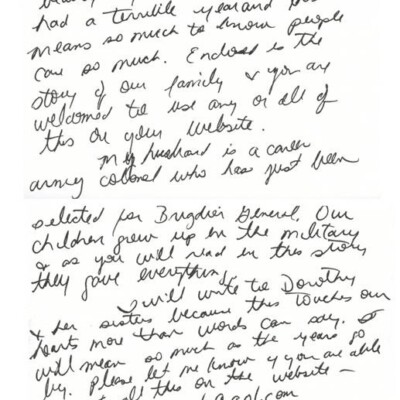 had a terrible year and
means so much to know people
care so much. Enclosed is the
story of our family & you are
welcomed to use any or all of
this on your website.
My husband is a career
army colonel who has just been
selected for Brigdier General. Our
children grew up in the military
& as you will read in this story
they gave everything.
I will write to Dorothy
& her sisters because this touches our
hearts more than words can say. It
will mean so much as the years go
by. Please let me know if you are able
all this on the website –
aol.com